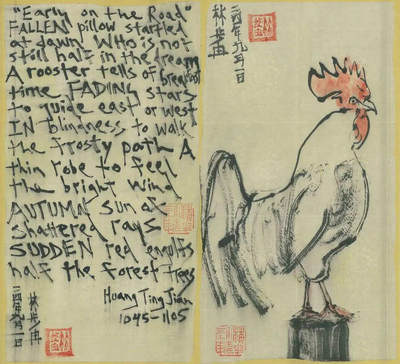 "Early on the Road"
FALLEN pillow startled
at dawn Who is not
still half in the dream
A rooster tells of breakfast
time FADING stars
to guide east or west
IN blindness to walk
the frosty path A
thin robe to feel
the bright wind
AUTUMN sun ax
shattered rays
SUDDEN red engulfs
half the forest trees
Huang Ting Jian
1045-1105
年九月一日
林
年九月一日
林